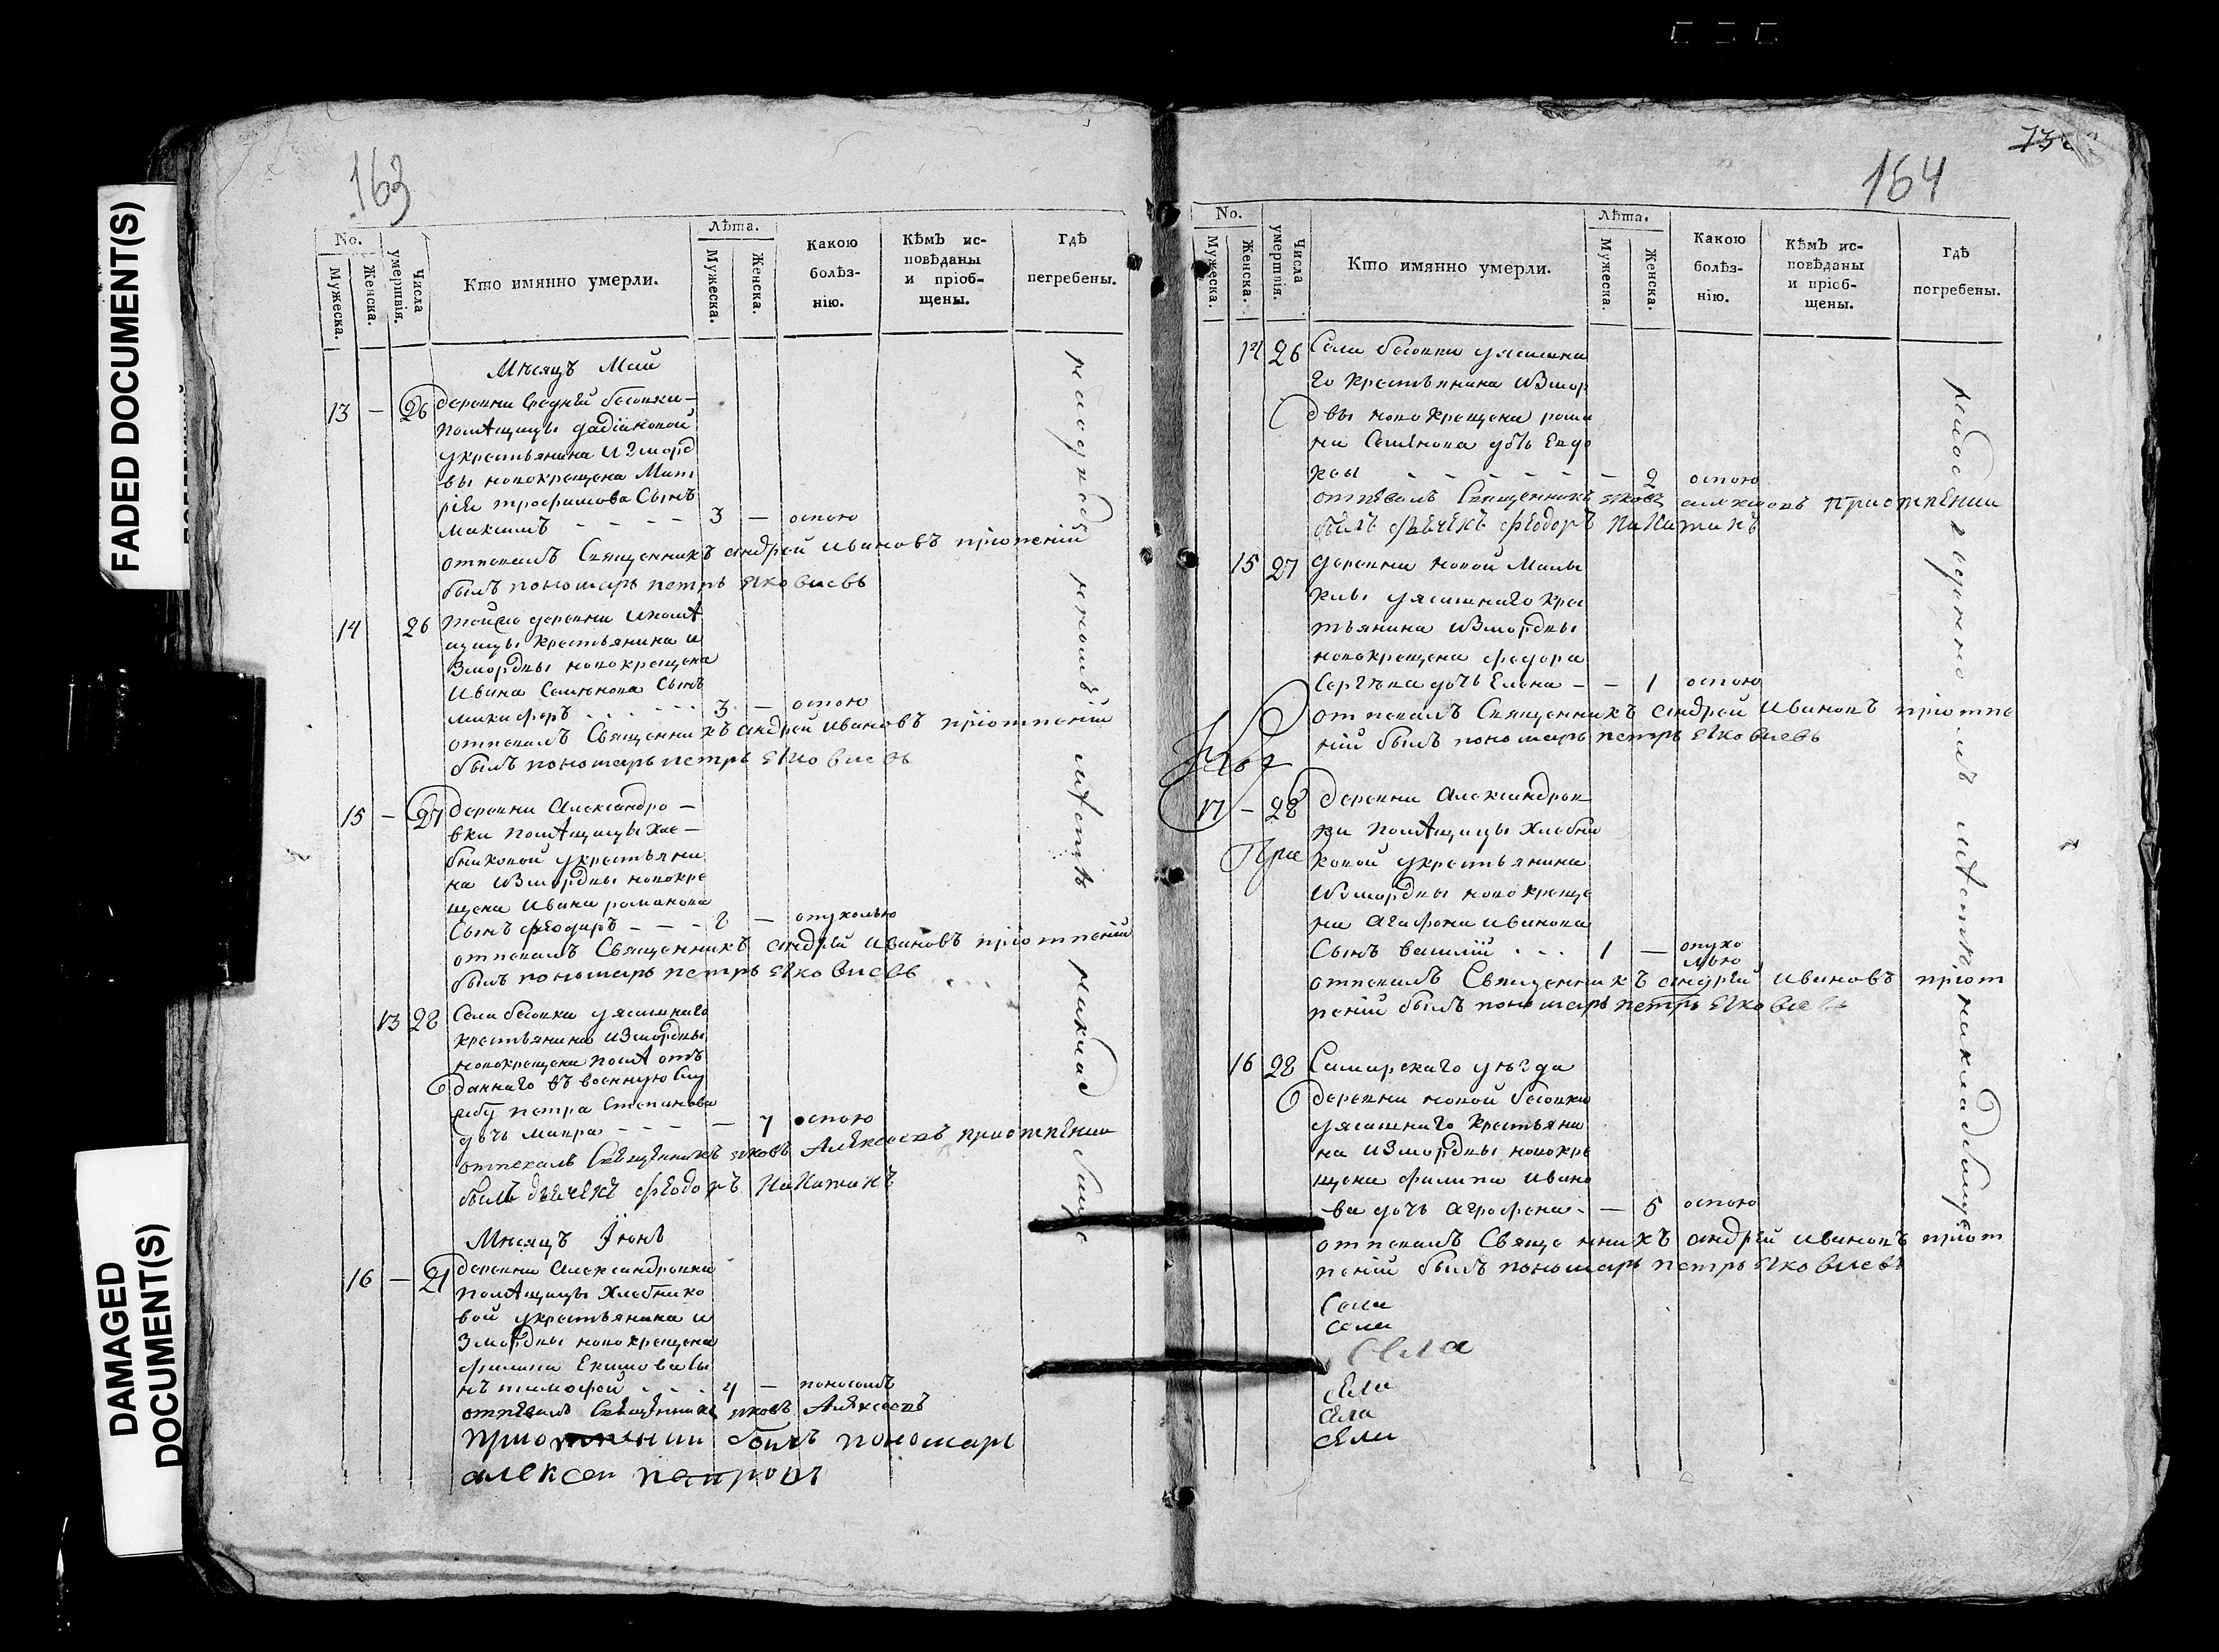 FADED DOCUMENT(S)
DAMAGED DOCUMENT(S)
163
No.
Мужеска.
Женска.
Числа умертвія.
Кто имянно умерли.
Лѣта.
Мужеска.
Женска.
Какою болѣз-
нію.
Кѣмъ ис-
повѣданы
и пріоб-
щены.
Гдѣ
пегребены.
Мѣсяцъ Май
13 — 26 деревни Средней бесовки —
помѣщицы
укрестьянина Изморд
вы новокрещена
трофимова Сынъ
Максимъ - - - - 3 — оспою
отпевалъ Священникъ андрей Ивановъ приотпеній
былъ пономарь петръ Яковлевъ
14 26 тойже деревни ипомѣ
щицы крестьянина и
Змордвы новокрещена
Ивана Семенова Сынъ
никифоръ - - - - 3 — оспою
отпевалъ Священникъ андрей Ивановъ приотпеній
былъ пономарь петръ Яковлевъ
15 — 27 деревни Александро —
вки помѣщицы Хле —
бниковой укрестьяни
на Измордвы новокре
щена Ивана романова
Сынъ феодоръ - - - 2 — опухолью
отпевалъ Священникъ андрей Ивановъ приотпеній
былъ пономарь петръ Яковлевъ
13 28 Села бесовки уясашнаго
крестьянина Измордвы
новокрещена отъ
даннаго въ военную слу
жбу петра Степанова
дочь Мавра - - - — 7 оспою
отпевалъ Священникъ яковъ Алексеевъ приотпении
былъ дьячекъ феодоръ Никитинъ
Мѣсяцъ Іюнь
16 — 21 деревни Александровки
помѣщицы Хлебнико
вой укрестьянина и
Змордвы новокрещена
филипа Екимова Сы
нъ тимофей - - - 4 — поносомъ
отпевалъ Священникъ яковъ Алексеевъ
приотпении былъ пономарь
алексеи петровъ
наоднедѣ номъ мѣстѣ накладбище
164
No.
Мужеска.
Женска.
Числа умертвія.
Кто имянно умерли.
Лѣта.
Мужеска.
Женска.
Какою болѣз-
нію.
Кѣмъ ис-
повѣданы
и пріоб-
щены.
Гдѣ
погребены.
14 26 Села бесовки уясашна
го крестьянина Измор
двы новокрещена рома
на Семенова дочь Евдо
кея - - - - - — 2 оспою
отпевалъ Священникъ яковъ алексеевъ приотпении
былъ дьячекъ феодоръ Никитинъ
15 27 деревни новой Малы
клы уясашнаго крес
тьянина Измордвы
новокрещена федора
Сергѣева дочь Елена - — 1 оспою
отпевалъ Священникъ андрей Ивановъ приотпе
ній былъ пономарь петръ Яковлевъ
17 — 28 деревни Александров
ки помѣщицы Хлебни
ковой укрестьянина
Измордвы новокреще
на Агафона Иванова
Сынъ василій - - - 1 — опухо
лью
отпевалъ Священникъ андрей Ивановъ приот
пеній былъ пономарь петръ Яковлевъ
16 28 Самарскаго уѣзда
деревни новой бесовки
уясашнаго крестьяни
на Измордвы новокре
щена филипа Ивано
ва дочь Агрофена - — 5 оспою
отпевалъ Священникъ андрей Ивановъ приот
пеній былъ пономарь петръ Яковлевъ
Села
села
Села
села
села
села
накладбище